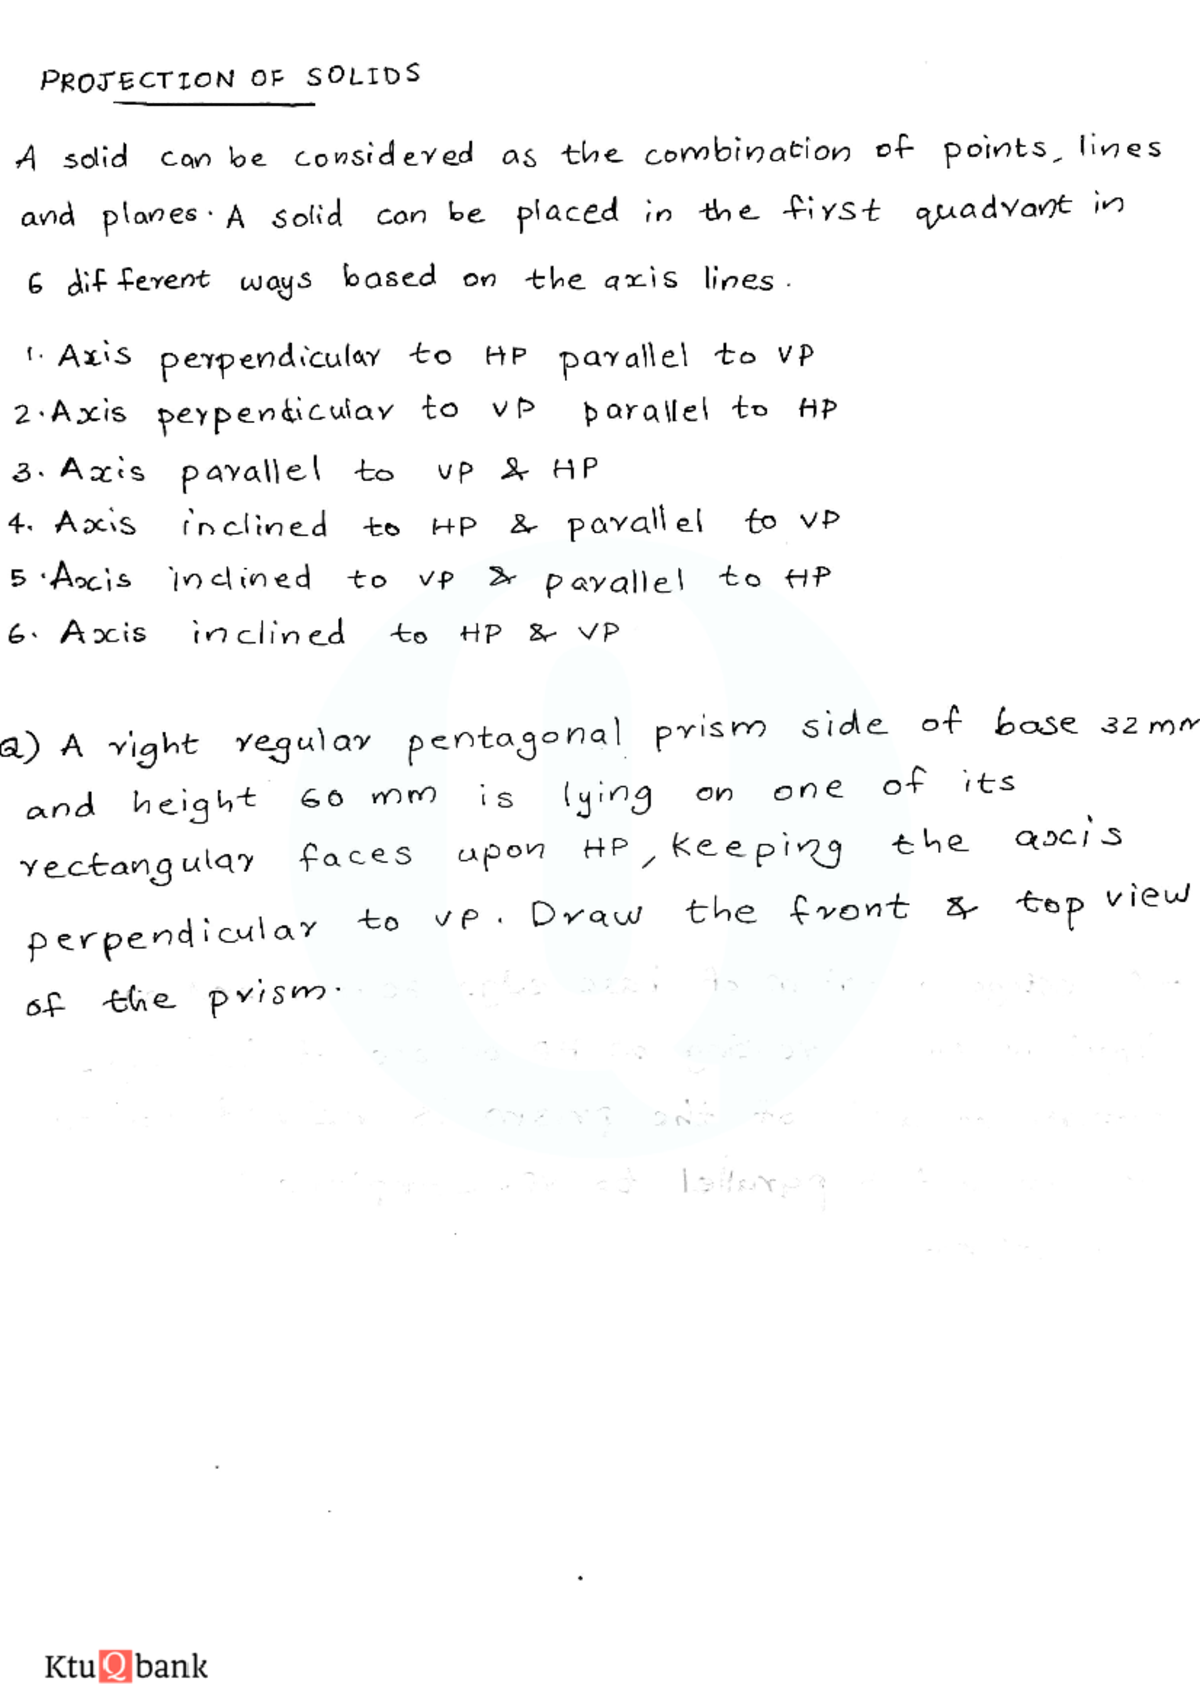 PROJECTION OF SOLIDS
A solid can be considered as the combination of points, lines
and planes. A solid can be placed in the first quadrant in
6 different ways based on the axis lines.
1. Axis perpendicular to HP parallel to VP
2. Axis perpendicular to VP parallel to HP
3. Axis parallel to VP & HP
4. Axis inclined to HP & parallel to VP
5. Axis inclined to VP & parallel to HP
6. Axis inclined to HP & VP
Q) A right regular pentagonal prism side of base 32 mm
and height 60 mm is lying on one of its
rectangular faces upon HP, keeping the axis
perpendicular to VP. Draw the front & top view
of the prism.
KtuQbank